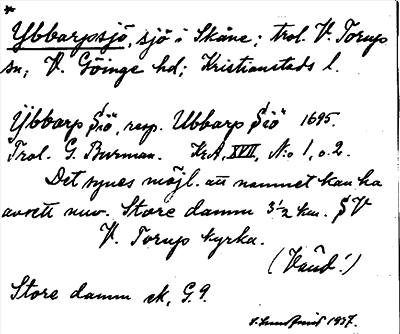 *
Ybbarpssjö, sjö i Skåne; trol. V. Torup
sn, V. Göinge hd; Kristianstads l.
Ÿbbarp Siö, resp. Ubbarp Siö 1695.
Trol. G. Burman. KrA XVII, N:o 1, o. 2.
Det synes möjl. att namnet kan ha
avsett nuv. Store damm 3½ km. SV
V. Torup kyrka.
(Vänd!)
Store damm ek, G.9.
1937.